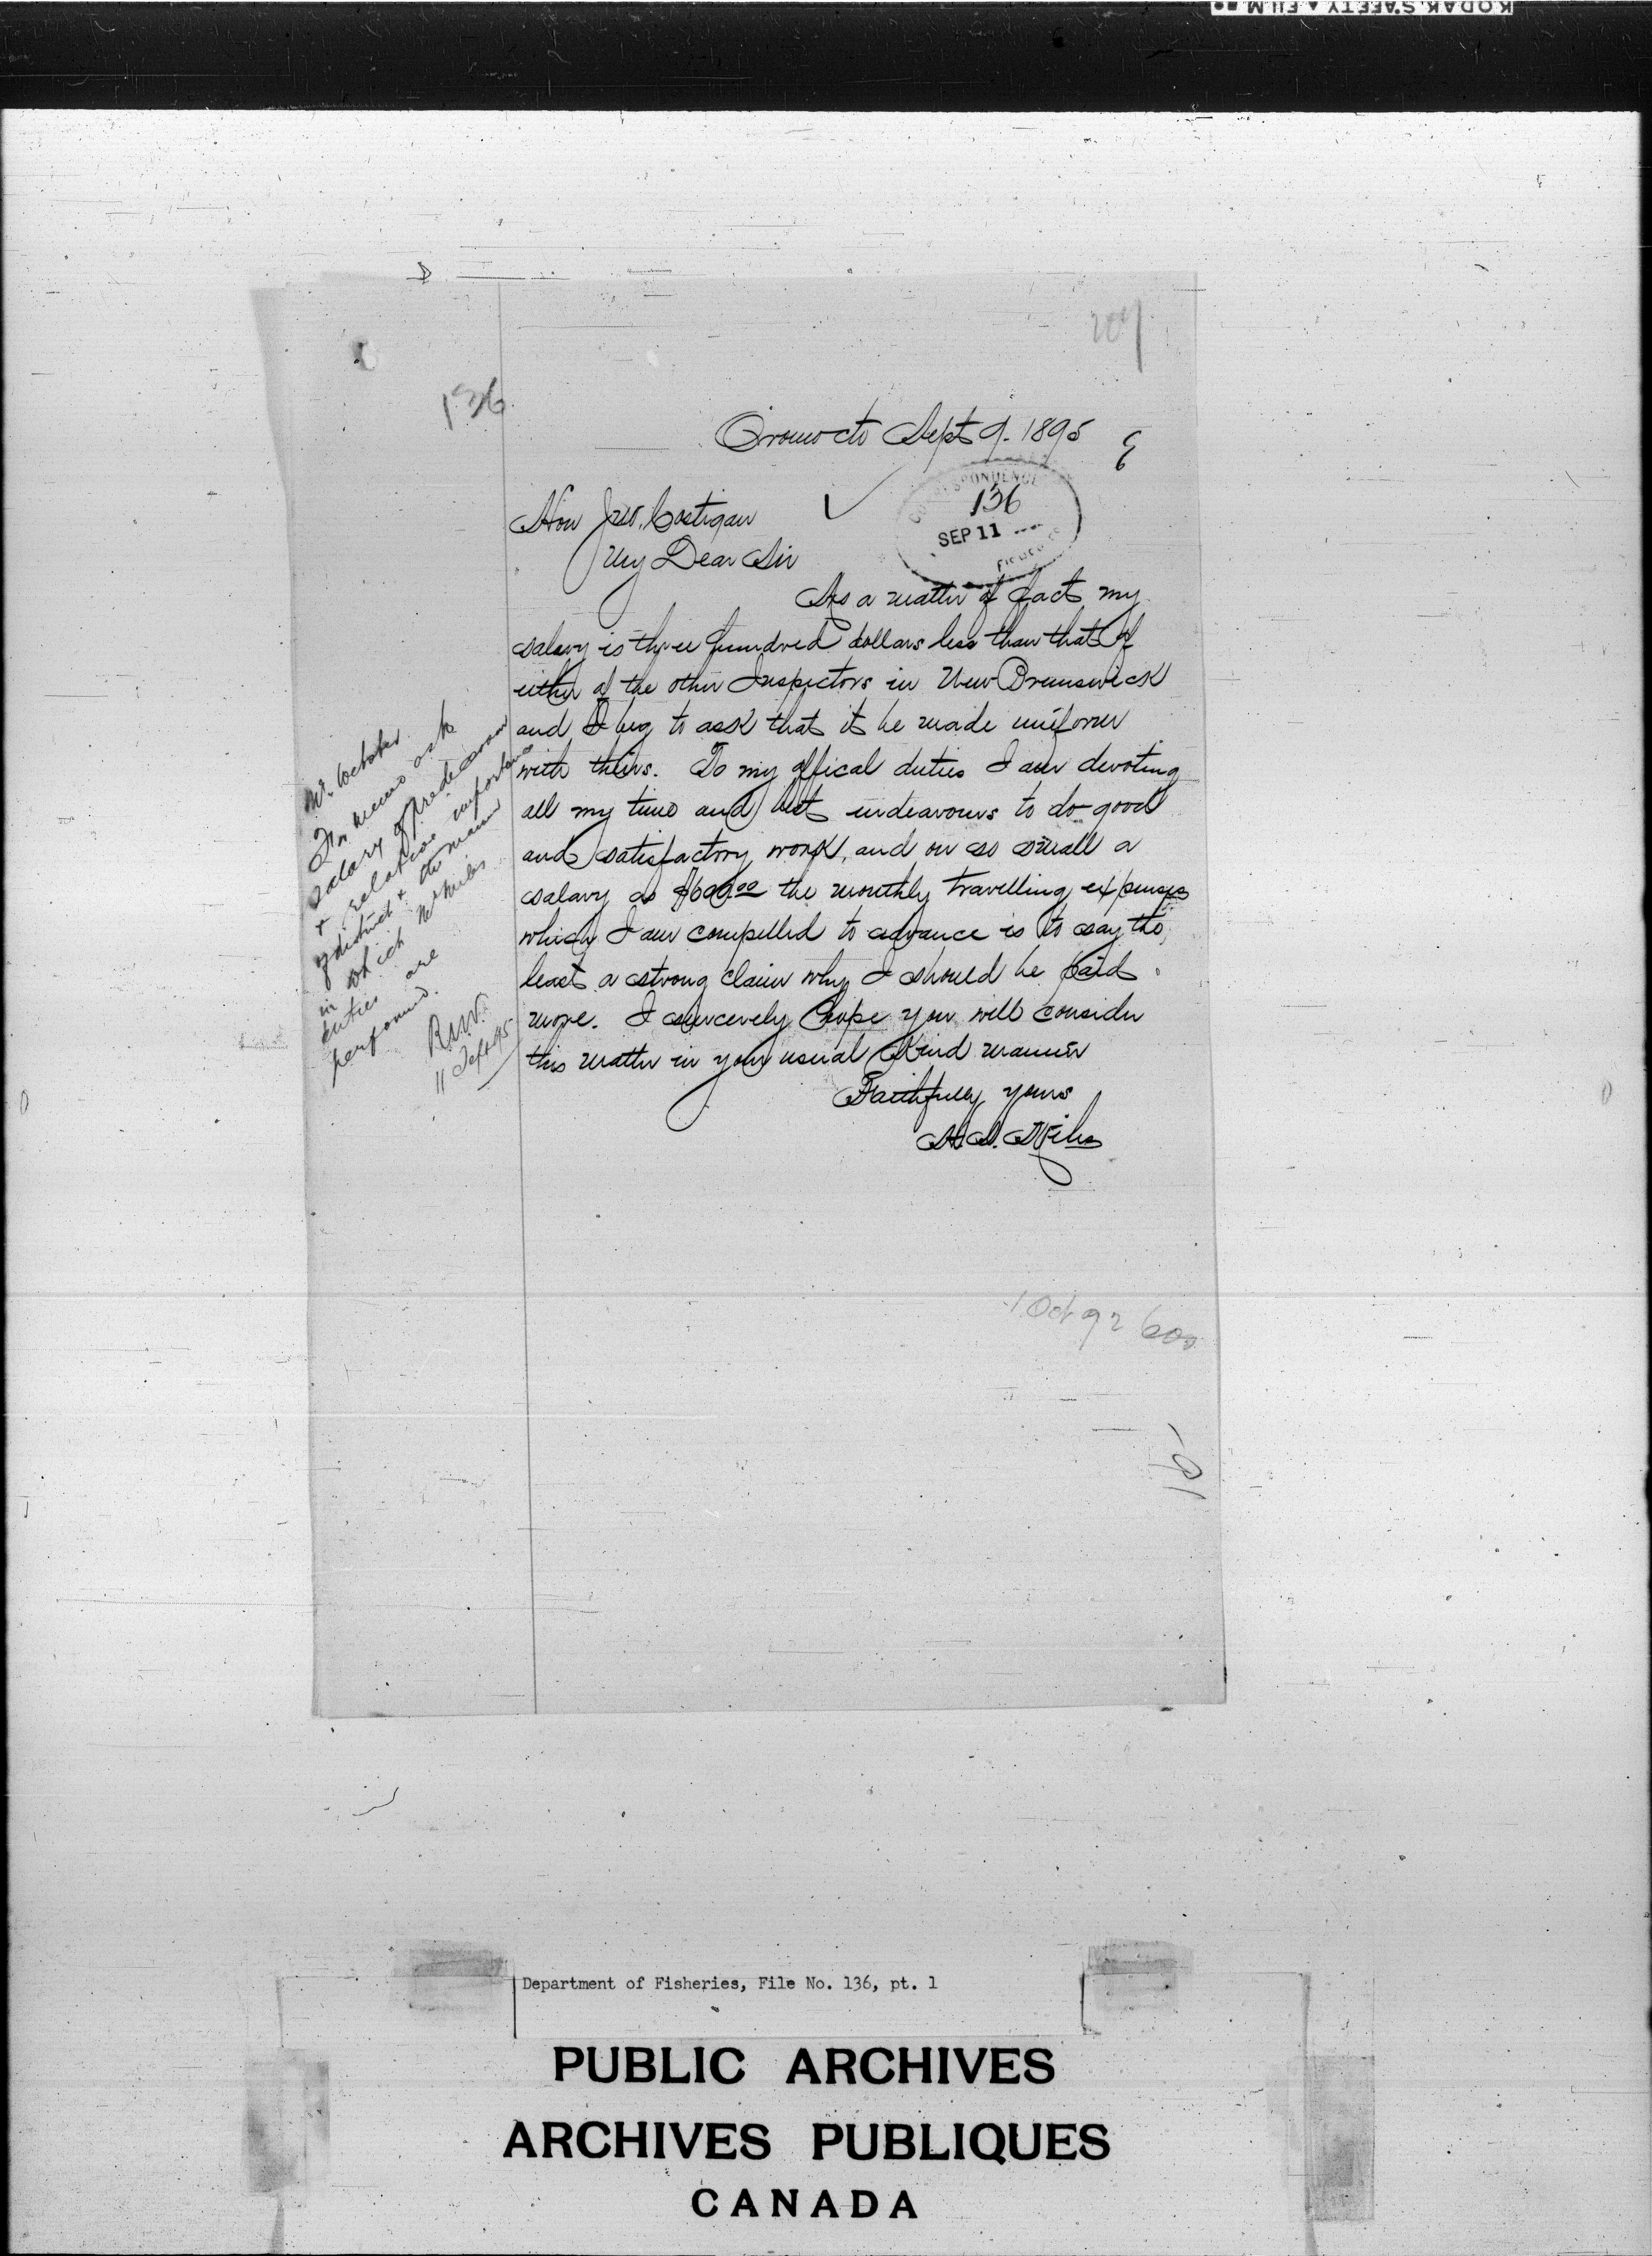 KODAK SAFETY FILM
207
136
Oromocto Sept 9. 1895
CORRESPONDENCE
136
SEP 11
Hon Jno. Costigan
My Dear Sir
As a matter of fact my
salary is three hundred dollars less than that of
either of the other Inspectors in New Brunswick
and I beg to ask that it be made uniform
with theirs. To my offical duties I am devoting
all my time and best endeavours to do good
and satisfactory work, and on so small a
salary as $600.00 the monthly travelling expenses
which I am compelled to advance is to say the
least a strong claim why I should be paid
more. I sincerely hope you will consider
this matter in your usual kind manner
Faithfully yours
H.S. Miles
Mr. Webster
For memo as to
salary of predecessor
& relative importance
of district & the manner
in which Mr Miles
duties are
performed.
R.N.V.
11 Sept 95
1 Oct 92 600
Department of Fisheries, File No. 136, pt. 1
PUBLIC ARCHIVES
ARCHIVES PUBLIQUES
CANADA